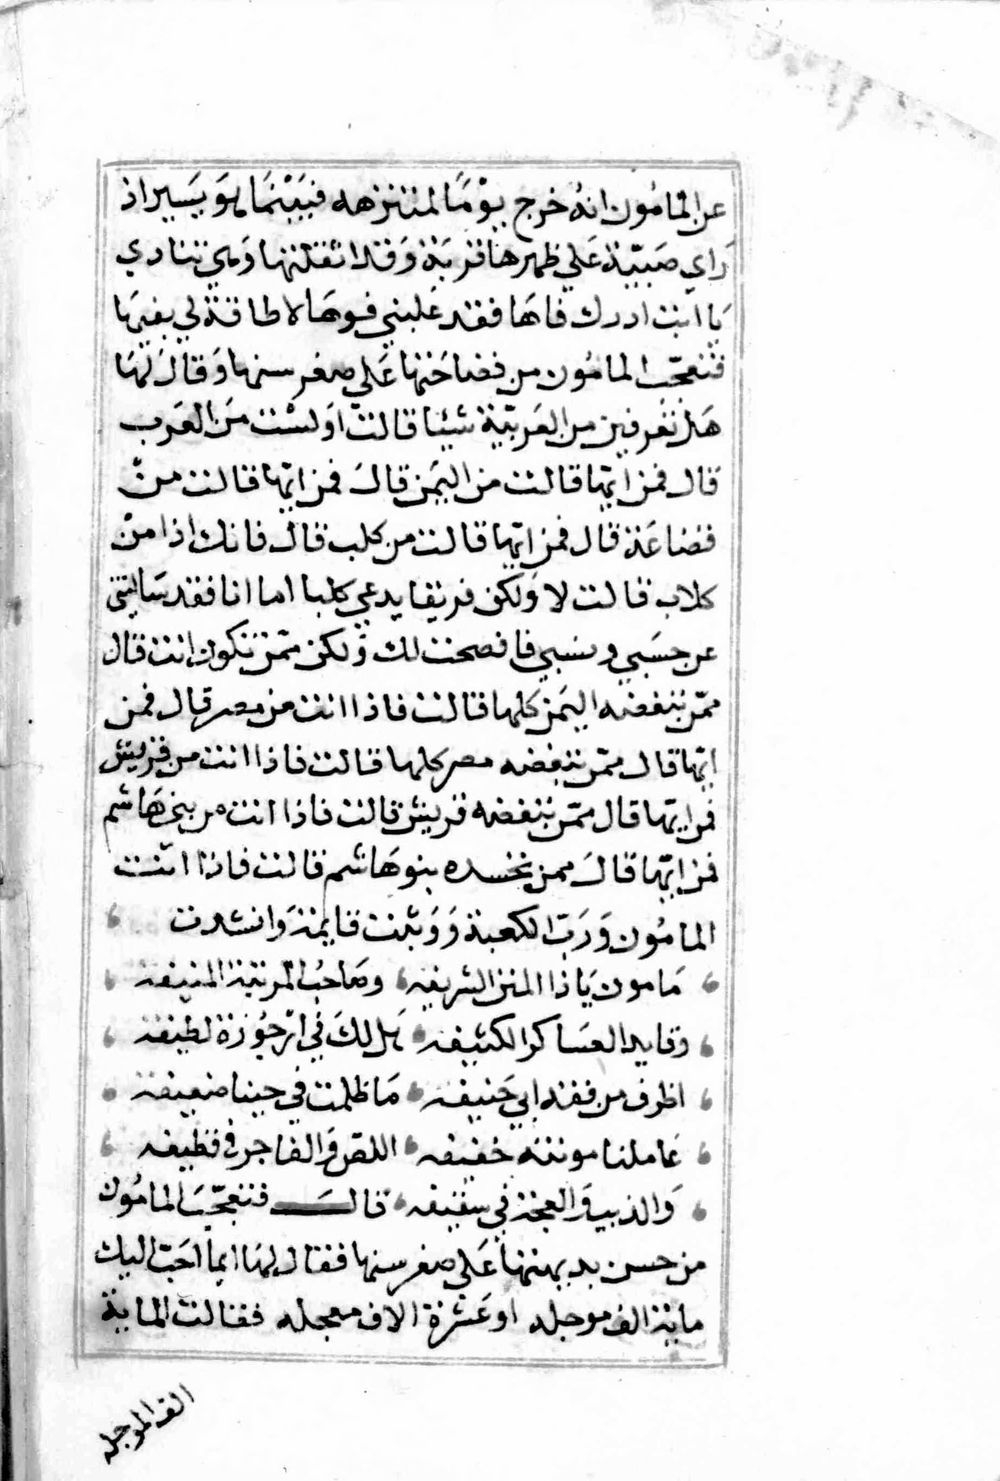 عن المامون انه خرج يوما لمتنزهه فبينما هو يسير اذ
راي صبية علي ظهرها قربة وقد اثقلتها وهي تنادي
يا ابت ادرك فاها فقد غلبني فوها لا طاقة لي بفيها
فتعجب المامون من فصاحتها علي صغر سنها وقال لها
هل تعرفين من العربية شيئا قالت اولست من العرب
قال فمن ايها قالت من اليمن قال فمن ايها قالت من
قضاعة قال فمن ايها قالت من كلب قال فانك اذا من
كلاب قالت لا ولكن فريقا يدعي كلبا اما انا فقد سالتني
عن حسبي ونسبي فافصحت لك ولكن ممن تكون انت قال
ممن تبغضه اليمن كلها قالت فاذا انت من مضر قال فمن
ايها قال ممن تبغضه مضر كلها قالت فاذا انت من قريش
فمن ايها قال ممن تبغضه قريش قالت فاذا انت من بني هاشم
فمن ايها قال ممن تحسده بنو هاشم قالت فاذا انت
المامون ورب الكعبة ووثبت قايمة وانشدت
مامون يا ذا المنن الشريفه وصاحب المرتبة المنيفه
وقايد العساكر الكثيفه هل لك في ارجوزة لطيفه
اظرف من فقه ابي حنيفه ما ظلمت في حينا ضعيفه
عاملنا مونته خفيفه اللص والفاجر في قطيفه
والذيب والعجة في سقيفه قال فتعجب المامون
من حسن بديهتها علي صغر سنها فقال لها ايما احب اليك
ماية الف موجله او عشرة الاف معجله فقالت الماية
الف الموجله